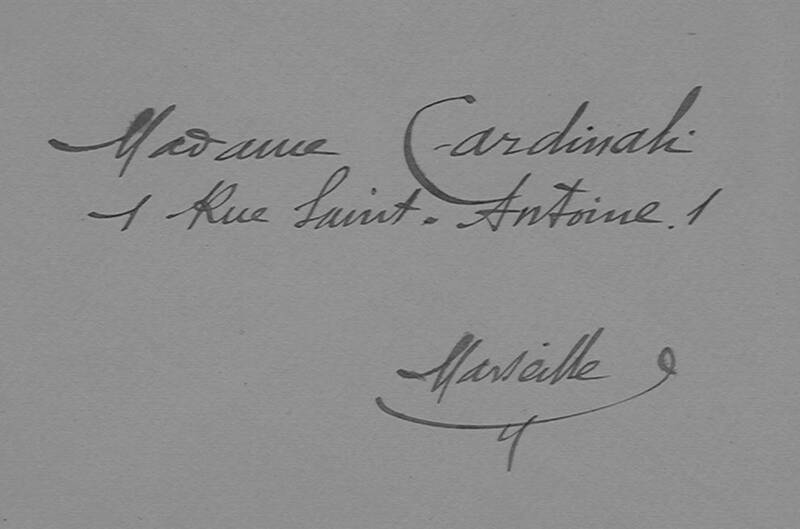 Madame Cardinali
1 Rue Saint-Antoine.1
Marseille